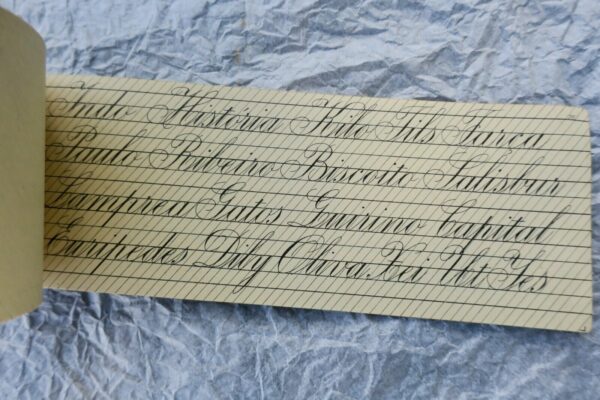 Indo Historia Kilo Tils Farca
Paulo Ribeiro Biscoito Salisbur
Lamprea Gatos Guirino Capital
Euripedes Dily Oliva Xei Vht Yes